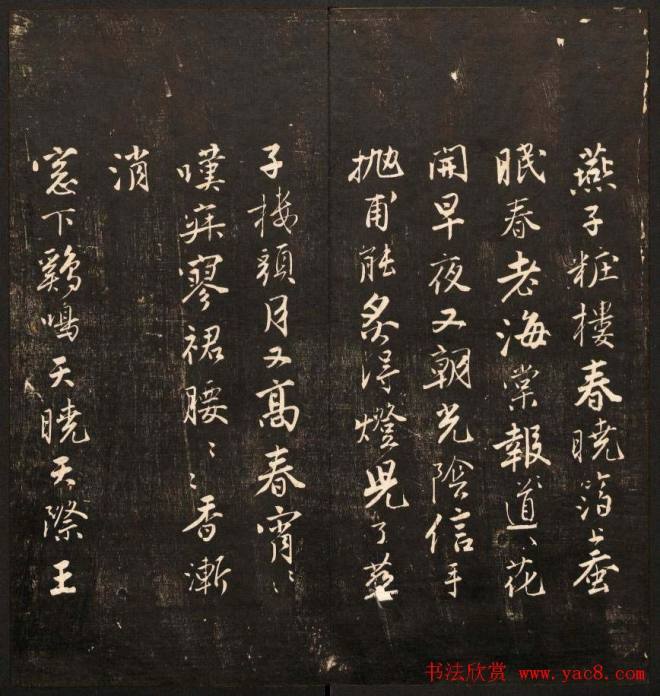 燕子粧樓春曉箔上蚕
眠春老海棠報道〻花
開早夜又朝光陰信手
抛甫能炙得燈兒了燕
子樓頭月又高春宵〻〻
嘆寂寥裙腰〻〻香漸
消
窓下鷄鳴天曉天際王
书法欣赏 www.yac8.com